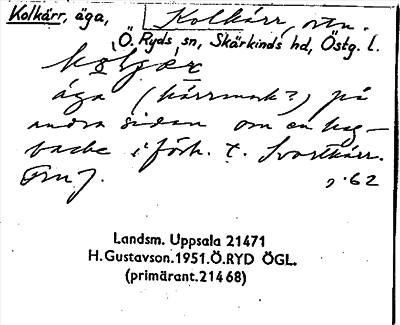 Kolkärr, äga, Kolkärr, otn.
Ö. Ryds sn, Skärkinds hd, Östg. l.
kolçær
äga (kärrmark?) på
andra sidan om en hag-
backe i förh. t. Svartkärr.
Fru J. s. 62
Landsm. Uppsala 21471
H. Gustavson. 1951. Ö. RYD ÖGL.
(primärant. 21468)